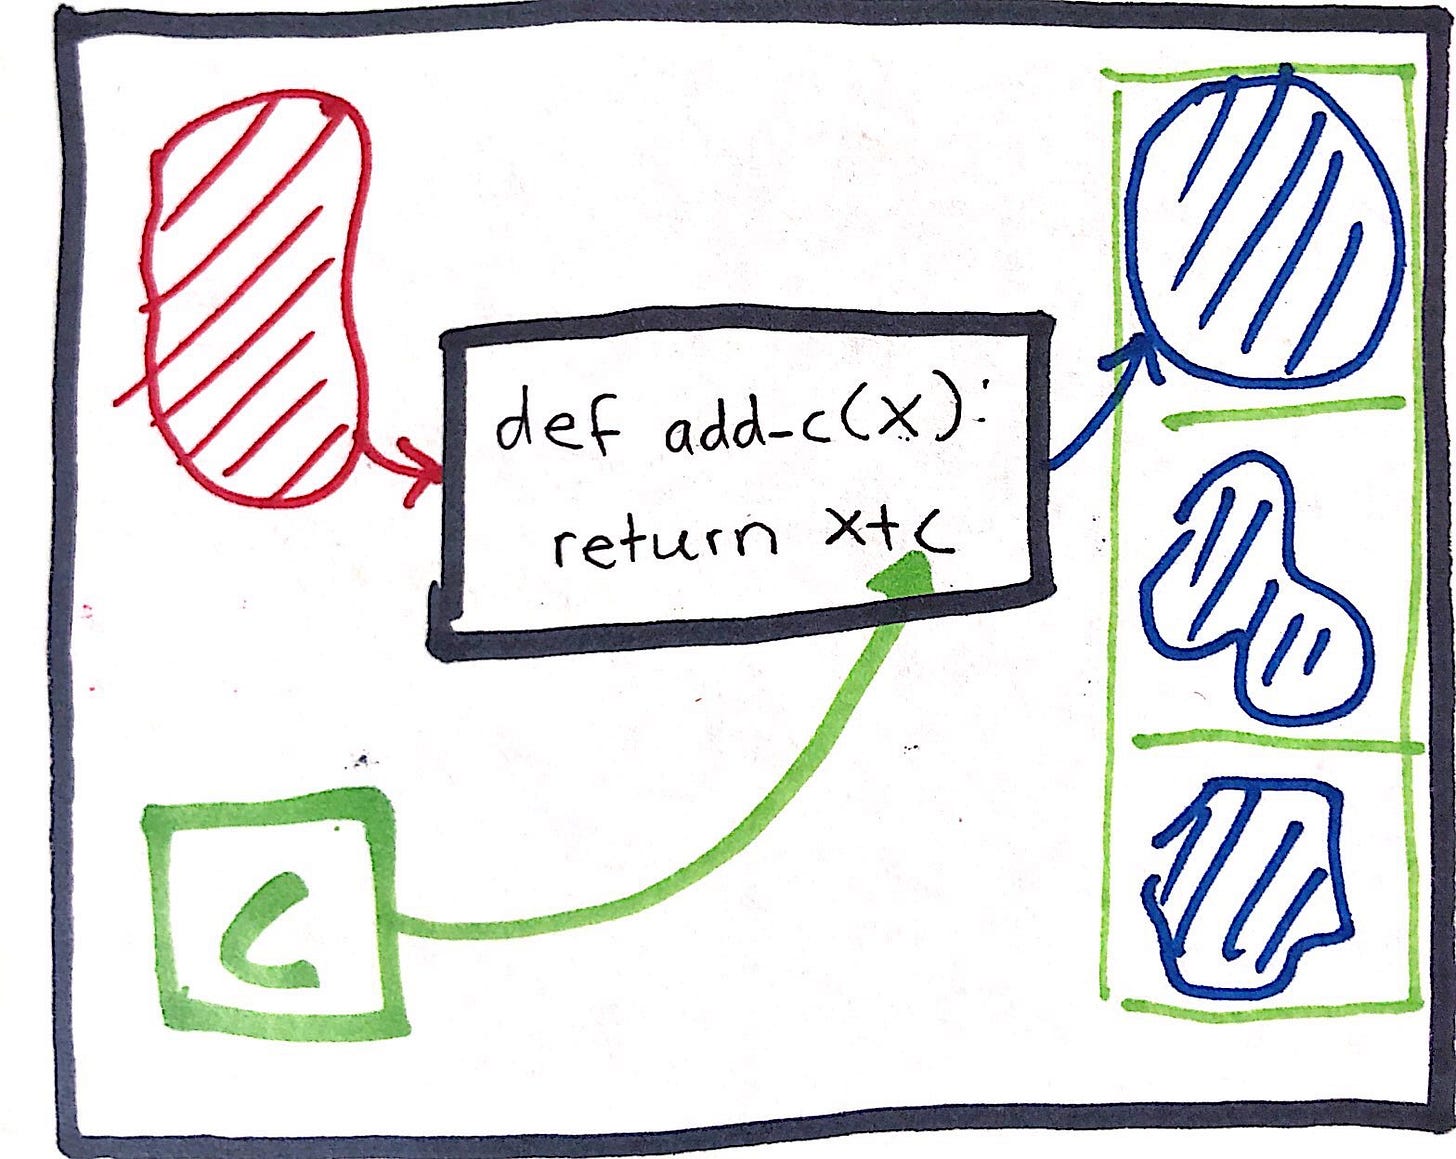 def add-c(x):
return x+c
C